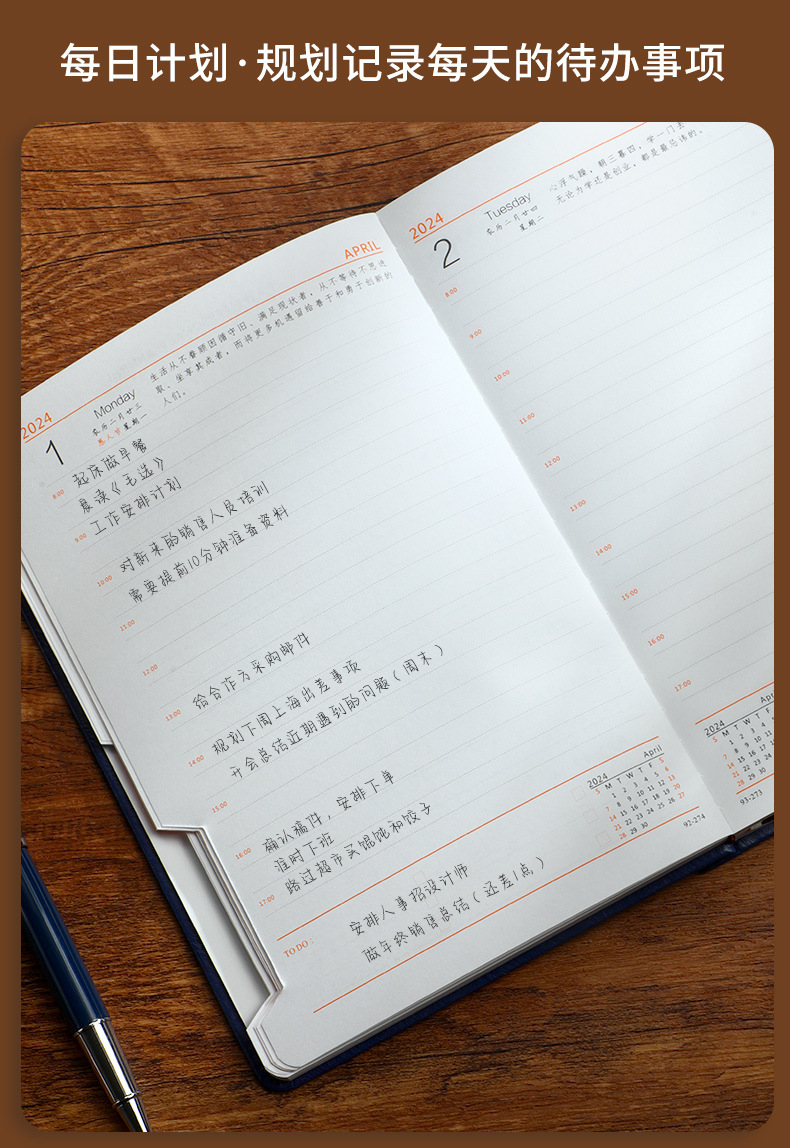 每日计划·规划记录每天的待办事项
2024
APRIL
1
Monday
农历二月廿三
愚人节 星期一
生活从不眷顾因循守旧、满足现状者，从不等待不思进
取、坐享其成者，而将更多机遇留给善于和勇于创新的
人们。
8:00
起床做早餐
晨读《毛选》
9:00
工作安排计划
10:00
对新来的销售人员培训
需要提前10分钟准备资料
11:00
12:00
13:00
给合作方采购邮件
14:00
规划下周上海出差事项
开会总结近期遇到的问题（周末）
15:00
16:00
确认稿件，安排下单
准时下班
17:00
路过超市买馄饨和饺子
2024 April
S M T W T F S
1 2 3 4 5 6
7 8 9 10 11 12 13
14 15 16 17 18 19 20
21 22 23 24 25 26 27
28 29 30
92-274
TO DO :
安排人事招设计师
做年终销售总结（还差1点）
2024
2
Tuesday
农历二月廿四
星期二
心浮气躁，朝三暮四，学一门
无论为学还是创业，都是最忌讳的。
8:00
9:00
10:00
11:00
12:00
13:00
14:00
15:00
16:00
17:00
2024
S M T W
1 2 3
7 8 9 10
14 15 16 17
21 22 23 24
28 29 30
93-273